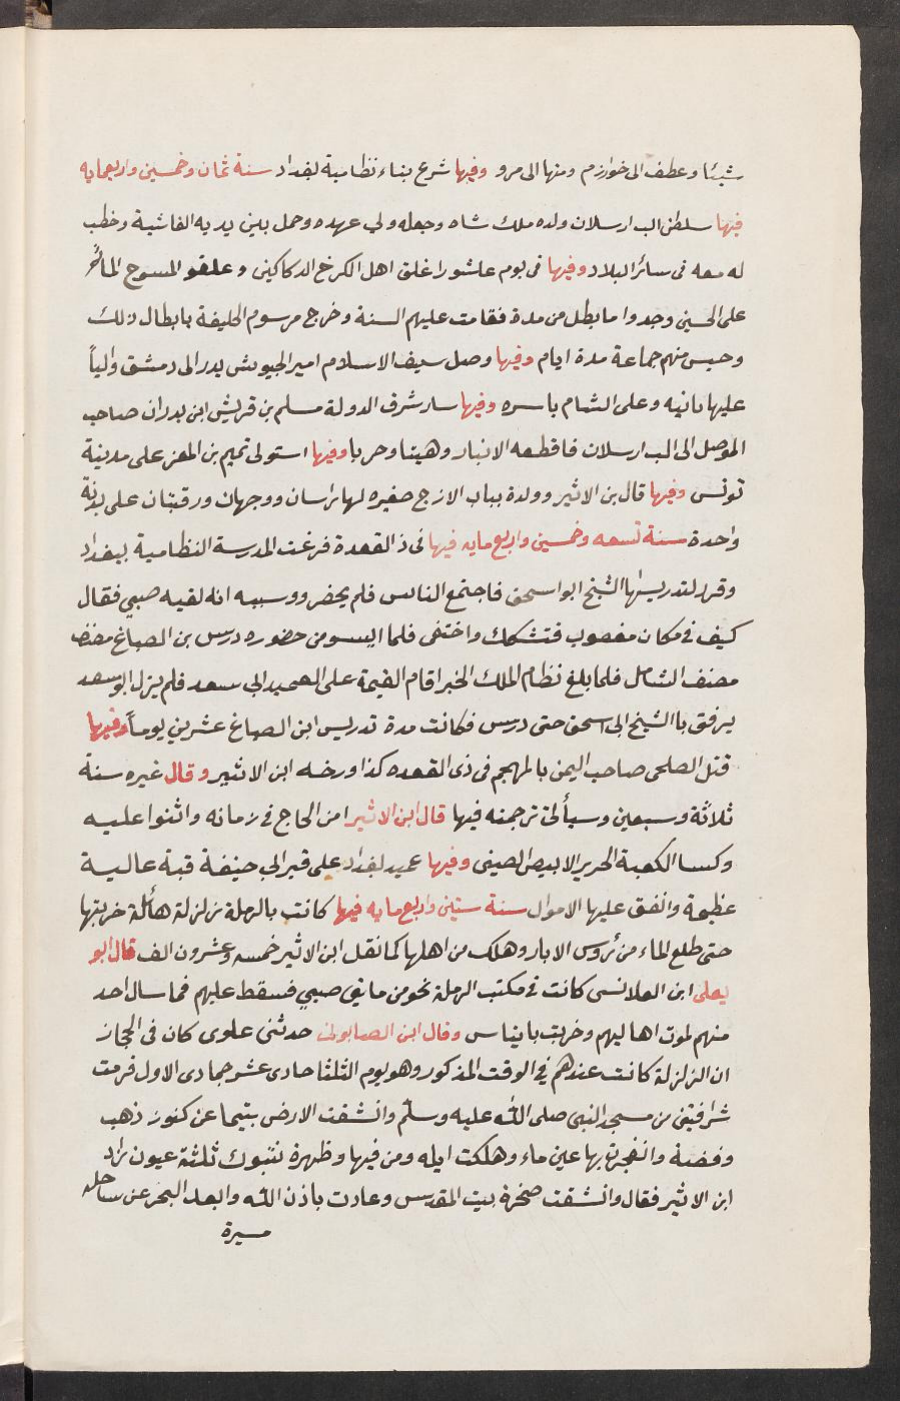 شيئا وعطف الى خوارزم ومنها الى مرو وفيها شرع بناء نظامية بغداد سنة ثمان وخمسين واربعمايه
فيها سلطن الب ارسلان ولده ملك شاه وجعله ولي عهده وحمل بين يديه الغاشية وخطب
له معه فى سائر البلاد وفيها فى يوم عاشورا غلق اهل الكرخ الدكاكين وعلقو المسوح
على الحسين وجددوا ما بطل من مدة فقامت عليهم السنة وخرج مرسوم الخليفة بابطال ذلك
وحبس منهم جماعة مدة ايام وفيها وصل سيف الاسلام امير الجيوش بدر الى دمشق والياً
عليها ثانيه وعلى الشام باسره وفيها سار شرف الدولة مسلم بن قريش ابن بدران صاحب
الموصل الى الب ارسلان فاقطعه الانبار وهيتا وحربا وفيها استولى تميم بن المعز على مدينة
تونس وفيها قال بن الاثير وولدة بباب الازج صغيره لها راسان ووجهان ورقبتان على بدنة
واحدة سنة تسعه وخمسين واربع مايه فيها فى ذ القعدة فرغت المدرسة النظامية ببغداد
وقرر لتدريسها الشيخ ابو اسحق فاجتمع الناس فلم يحضر وسببه انه لقيه صبي فقال
كيف فى مكان مغصوب فتشكك واختفى فلما ايسو من حضوره درس بن الصباغ
مصنف الشامل فلما بلغ نظام الملك الخبر اقام القيمة على العميد ابي سعد فلم يزل ابو سعد
يرفق باالشيخ ابى اسحق حتى درس فكانت مدة تدريس ابن الصباغ عشرين يوماً وفيها
قتل الصلحى صاحب اليمن بالمهجم فى ذى القعده كذا ورخه ابن الاثير وقال غيره سنة
ثلاثة وسبعين وسيأتى ترجمته فيها قال ابن الاثير امن الحاج فى زمانه واثنوا عليه
وكسا الكعبة الحرير الابيض الصينى وفيها عميد بغداد على قبر ابي حنيفة قبة عالية
عظيمة وانفق عليها الاموال سنة ستين واربع مايه فيها كانت بالرملة زلزلة هائلة خربتها
حتى طلع الماء من رؤس الابار وهلك من اهلها كما نقل ابن الاثير خمسه وعشرون الف قال ابو
يعلى ابن العلانسى كانت فى مكتب الرملة نحو من مايتى صبي فسقط عليهم فما سال احد
منهم لموت اهاليهم وخربت باينياس وقال ابن الصابونى حدثنى علوى كان فى الحجاز
ان الزلزلة كانت عندهم فى الوقت المذكور وهو يوم الثلثا حادى عشر جمادى الاول فرمت
شرافتين من مسجد النبى صلى الله عليه وسلم وانشقت الارض بتيما عن كنوز ذهب
وفضة وانفجرت بها عين ماء وهلكت ايله ومن فيها وظهرة بتبوك ثلثة عيون زاد
ابن الاثير فقال وانشقت صخرة بيت المقدس وعادت باذن الله وابعد البحر عن ساحله
مسيرة